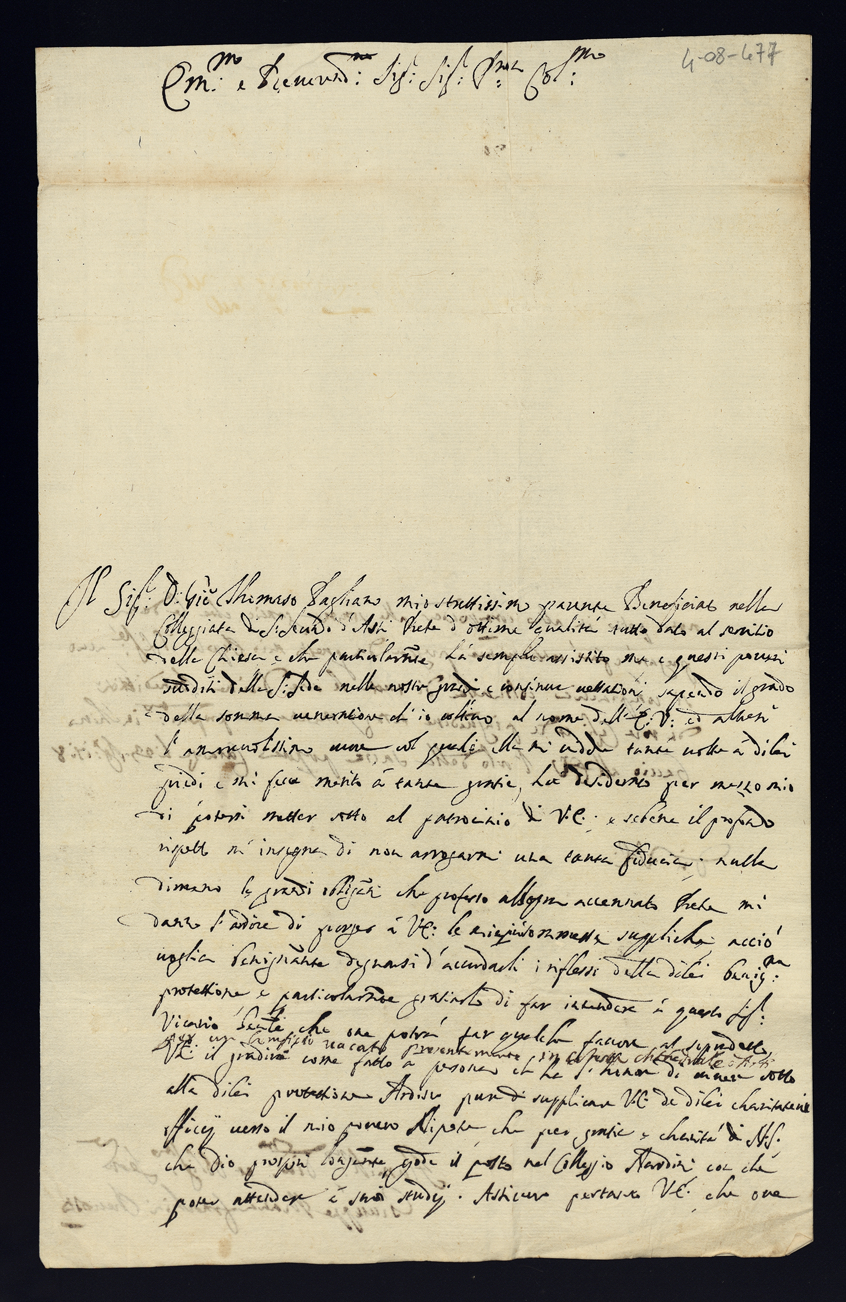 4-08-477
Em.mo e Reverend.mo Sig: Sig: P.ron Col.mo
Il Sig: D: Gio Thomaso Pagliano mio strettissimo parente Beneficiato nella
Colleggiata di S: Secondo d'Asti Prete d'ottime qualità tutto dato al servitio
della Chiesa e che particolarmte hà sempre assistito me e questi poveri
sudditi della S: Sede nelle nostre grandi e continue vessationi sapendo il grado
della somma veneratione ch'io coltivo al nome dell'E: V: ed
l'amorevolissimo cuore col quale ella mi vedeva tante volte a dilei
piedi e mi fece merito à tante gratie, hà desiderato per mezzo mio
di potersi metter sotto al patrocinio di V:E: e sebene il profondo
rispetto m'insegna di non arrogarmi una tanta fiducia; nulla
dimeno le grandi obligati che professo all accennato Prete mi
danno l'adire di porger à V:E: le suppliche acciò
voglia benignamte degnarsi d'accordarli i riflessi della dilei benig.ma
protettione e particolarmte gratiarlo di far intendere à questo Sig:
Vicario che ove potrà far qualche favore al sopradetto
per un benefitio vacato presentemente in questa chatedrale d'Asti
V:E: il gradirà come fatto a persona ch'hà l'honor di viver sotto
alla dilei protettione Ardisco pure di supplicar V:E: de dilei charitatevoli
officij verso il mio povero Nipote che per gratia e charità di N:S:
che Dio prosperi longamte gode il posto nel Collegio Nardini con che
poter attender à suoi studij. Assicuro pertanto V:E: che ove